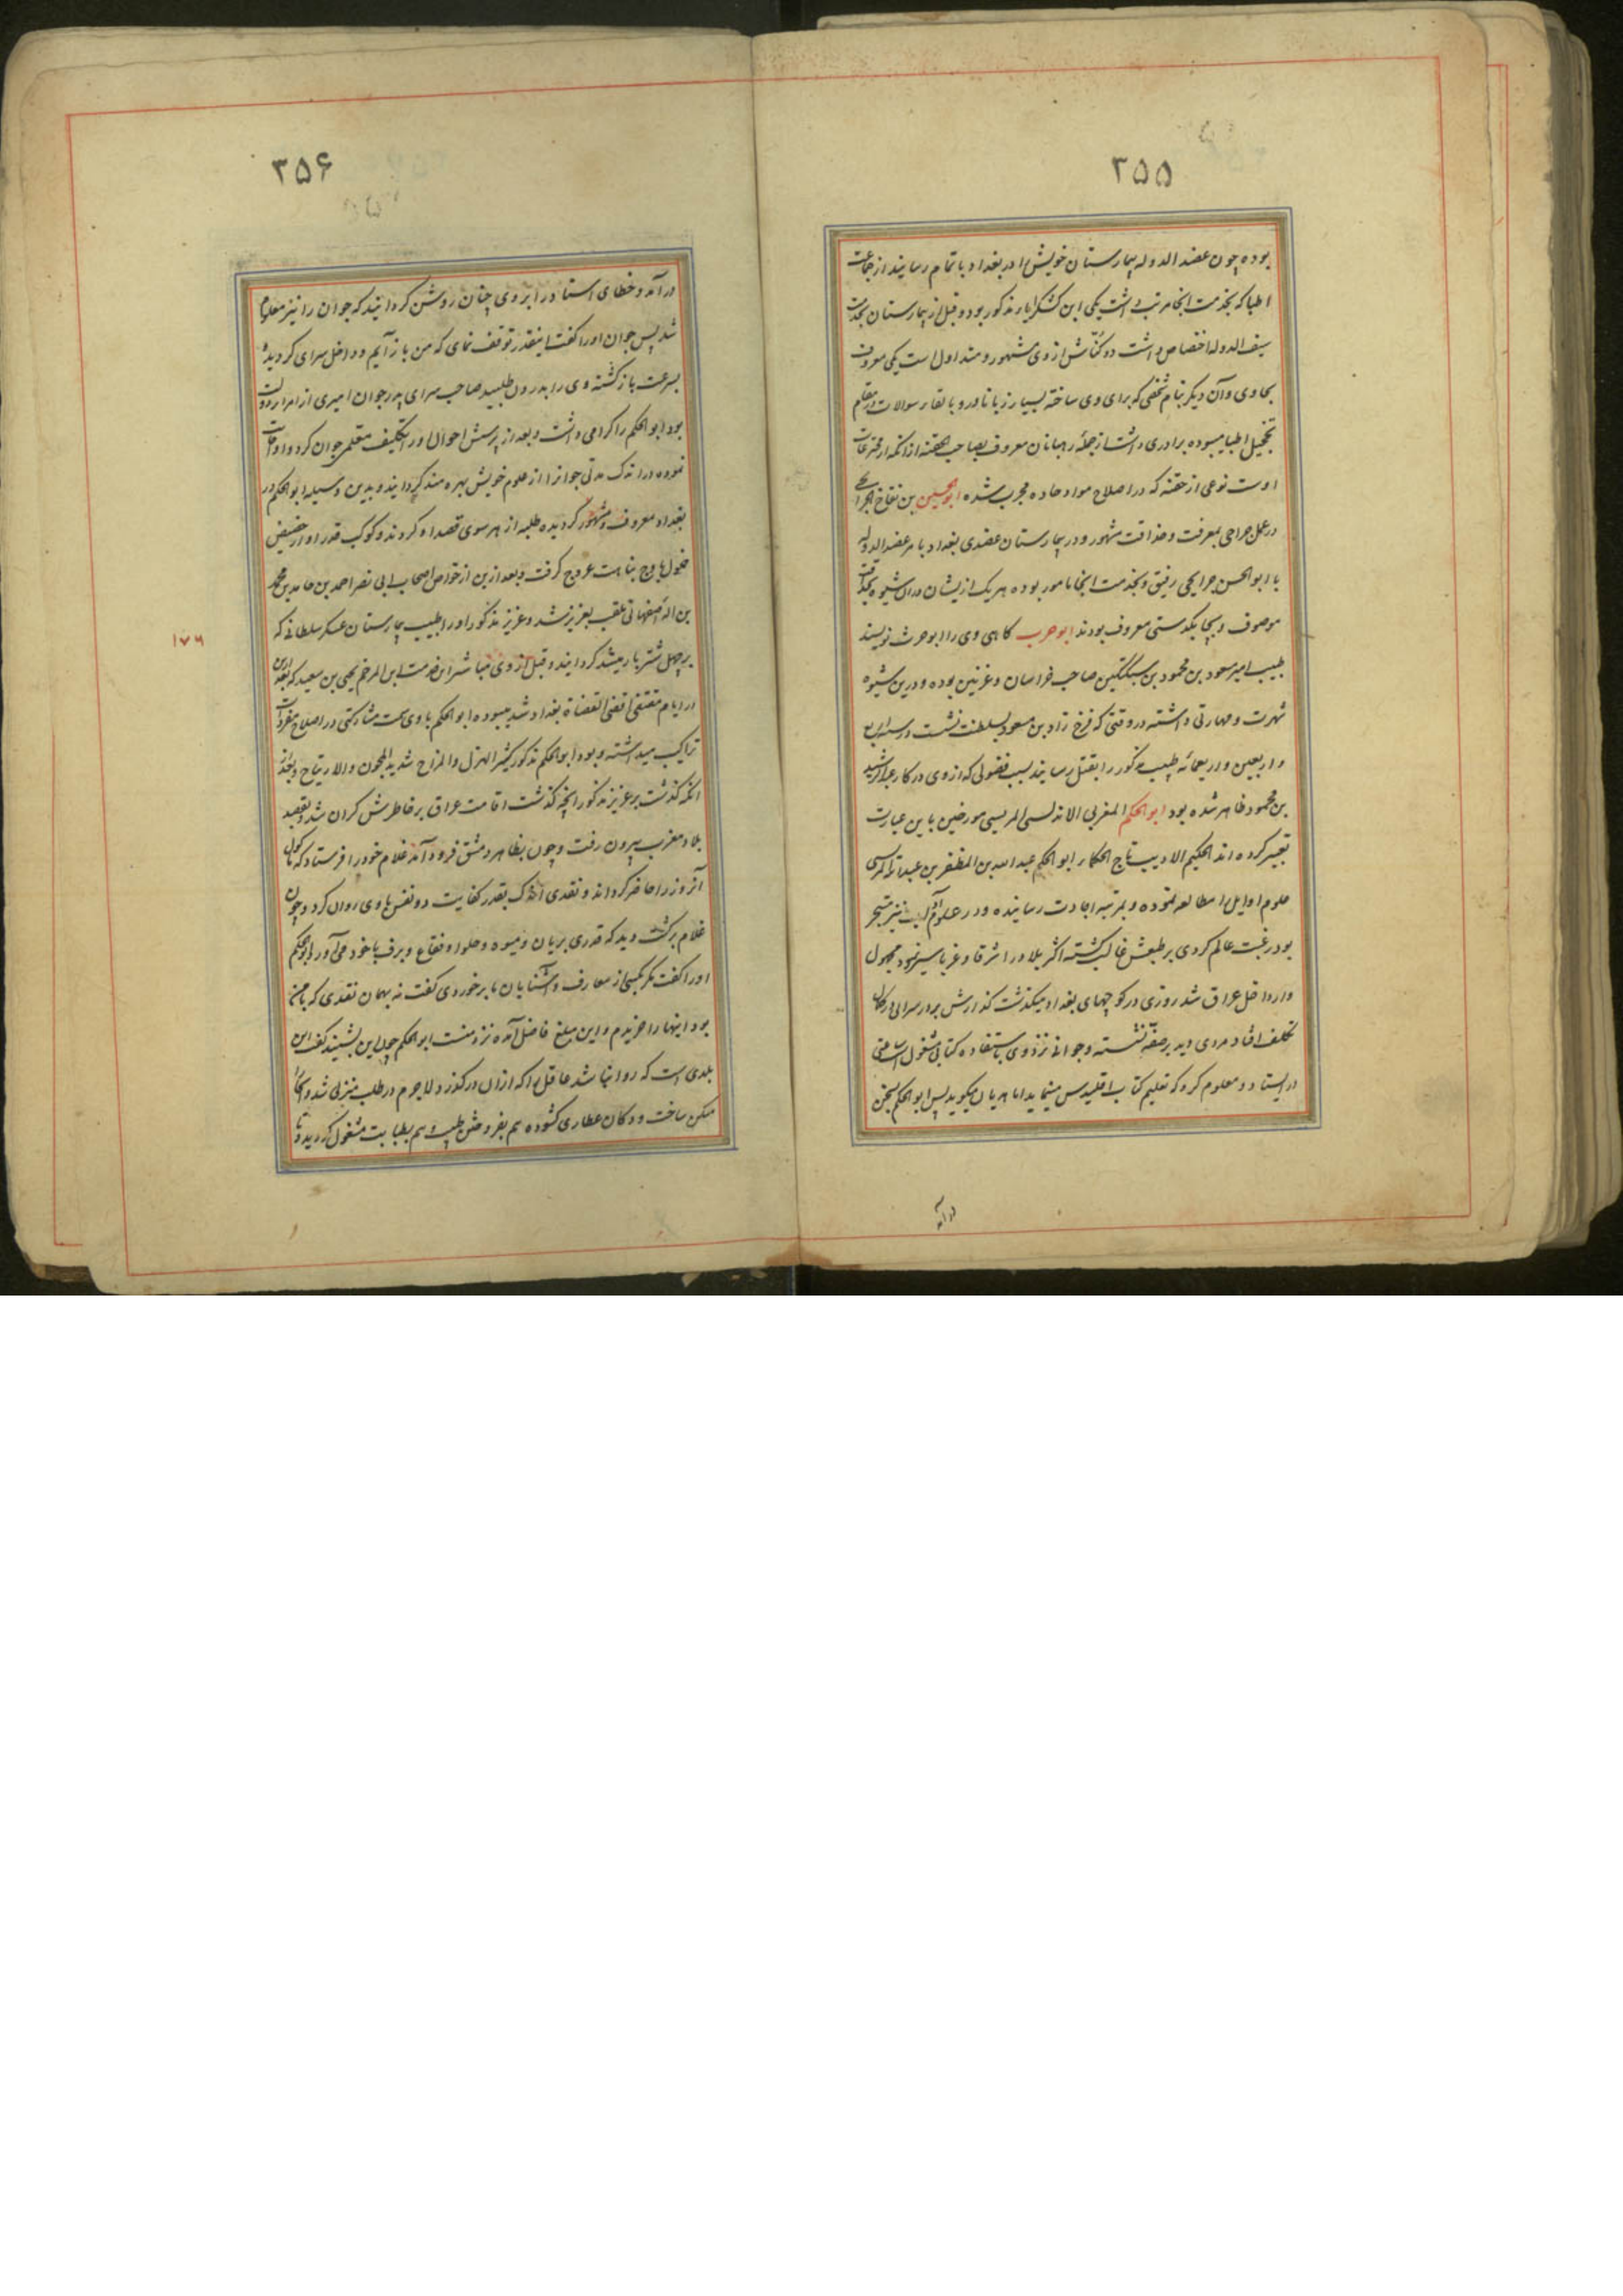 ۳۵۵
بوده چون عضد الدوله بیمارستان خویش را در بغداد باتمام رسانید از جماعت
اطبا که بخدمت انجا مرتب داشت یکی ابن کشکرایا مذکور بود و قبل از بیمارستان بخدمت
سیف الدوله اختصاص داشت دو کناش از وی مشهور و متداول است یکی معروف
بحاوی وآن دیگر بنام شخصی که برای وی ساخته بسیار زبان اور و بالقاء سوالات در مقام
تخجیل اطبا میبوده برادری داشت از جمله رهبانان معروف بصاحب الحقنه از انکه از مخترعات
اوست نوعی از حقنه که در اصلاح مواد حاده مجرب شده ابو الحسین بن نفاخ الجرائحی
در عمل جراحی بمعرفت وحذاقت مشهور ودر بیمارستان عضدی بغداد بامر عضد الدوله
با ابو الحسن جرایحی رفیق وبخدمت انجا مامور بوده هر یک از یشان دران شیوه بحذاقت
موصوف و بچابکدستی معروف بودند ابو حرب کاهی وی را ابو حرث نویسند
طبیب امیر مسعود بن محمود بن سبکتکین صاحب خراسان وغزنین بوده ودرین شیوه
شهرت ومهارتی داشته در وقتی که فرخ زاد بن مسعود بسلطنت نشست در سنه اربع
واربعین واربعمائه طبیب مذکور را بقتل رسانید بسبب فضولی که از وی در کار عبد الرشید
بن محمود ظاهر شده بود ابو الحکم المغربی الاندلسی المریسی مورخین باین عبارت
تعبیر کرده اند الحکیم الادیب تاج الحکماء ابو الحکم عبد الله بن المظفر بن عبد الله المرسی
علوم اوایل را مطالعه نموده وبمرتبه اجادت رسانیده ودر علوم آداب نیز متبحر
بود رغبت عالم کردی بر طبعش غالب کشته اکثر بلاد را شرقا وغربا سیر نمود مجهول
وار داخل عراق شد روزی در کوچهای بغداد میکذشت کذارش بر در سرائی در کمال
تکلف افتاد مردی دید بر صفه نشسته وجوانی نزد وی باستفاده کتابی مشغول است متی
در ایستاد ومعلوم کرد که تعلیم کتاب اقلیدس مینماید اما هذیان میکوید پس ابو الحکم بسخن
درآمد
۳۵۶
درآمد وخطای استاد را بر وی چنان روشن کردانید که جوان را نیز معلوم
شد پس جوان اورا کفت اینقدر توقف نمای که من باز آیم و داخل سرای کردیده
بسرعت باز کشته وی را بدرون طلبید صاحب سرای پدر جوان امیری از امراء دولت
بود ابو الحکم را کرامی داشت وبعد از پرسش احوال اورا تکلیف معلمی جوان کرد واو اجابت
نموده در اندک مدتی جوان را از علوم خویش بهره مند کردانید وبدین وسیله ابو الحکم در
بغداد معروف ومشهور کردیده طلبه از هر سوی قصد او کردند وکوکب قدر او از حضیض
خمول باوج نباهت عروج کرفت وبعد ازین از خواص اصحاب ابی نصر احمد بن حامد بن محمد
بن اله اصفهانی ملقب بعزیز شد وعزیز مذکور اورا طبیب بیمارستان عسکر سلطانی که
بر چهل شتر بار میشد کردانید وقبل از وی مباشر این خدمت ابن المرخم یحیی بن سعید که بعد ازین
در ایام مقتفی اقضی القضاة بغداد شد میبوده ابو الحکم باوی سمت مشارکتی در اصلاح مفردات
تراکیب میداشته وبود ابو الحکم مذکور کثیر الهزل والمزاح شدید المجون والارتیاح وبعد
انکه کذشت بر عزیز مذکور انچه کذشت اقامت عراق بر خاطرش کران شد وبقصد
بلاد مغرب بیرون رفت وچون بظاهر دمشق فرود آمد غلام خود را فرستاد که ماکول
آنروز را حاضر کرداند ونقدی اندک بقدر کفایت دو نفس باوی روان کرد وچون
غلام برکشت دید که قدری بریان ومیوه وحلوا وفقاع وبرف باخود می آورد ابو الحکم
اورا کفت مکر بکسی از معارف وآشنایان ما برخوردی کفت نه بهمان نقدی که با من
بود اینها را خریدم واین مبلغ فاضل آمده نزد منست ابو الحکم چون این بشنید کفت این
بلدی است که روا نباشد عاقل را که ازان در کذرد لاجرم در طلب منزلی شد وانجا
مسکن ساخت ودکان عطاری کشوده هم بفروختن طیب وهم بطبابت مشغول کردید وتا
۱۷۶